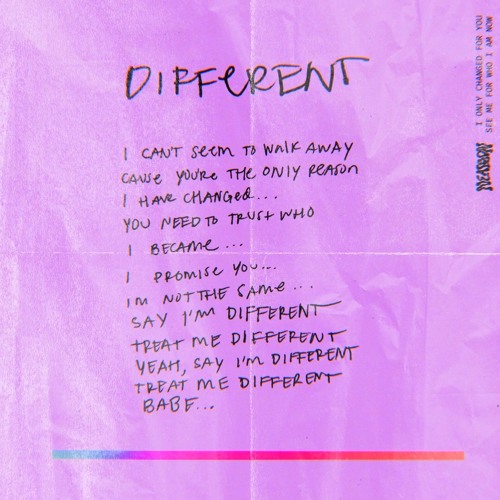 DIFFERENT
I CAN'T SEEM TO WALK AWAY
CAUSE YOU'RE THE ONLY REASON
I HAVE CHANGED...
YOU NEED TO TRUST WHO
I BECAME...
I PROMISE YOU...
IM NOT THE SAME...
SAY I'M DIFFERENT
TREAT ME DIFFERENT
YEAH, SAY I'M DIFFERENT
TREAT ME DIFFERENT
BABE...
I ONLY CHANGED FOR YOU
SEE ME FOR WHO I AM NOW